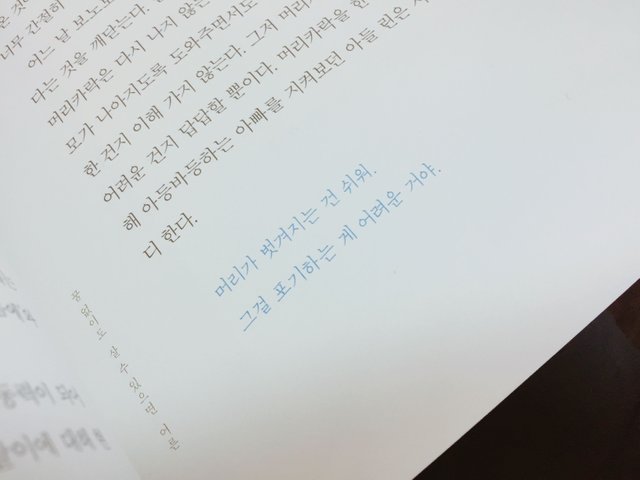 은 것
너무 간절히
어느 날 보노보
다는 것을 깨닫는다.
머리카락은 다시 나지 않는
모가 나아지도록 도와주면서도
한 건지 이해 가지 않는다. 그저 머리
어려운 건지 답답할 뿐이다. 머리카락을 한
해 아등바등하는 아빠를 지켜보던 아들 린은
디 한다.
머리가 벗겨지는 건 쉬워.
그걸 포기하는 게 어려운 거야.
꿈 없이도 살 수 있으면 어른